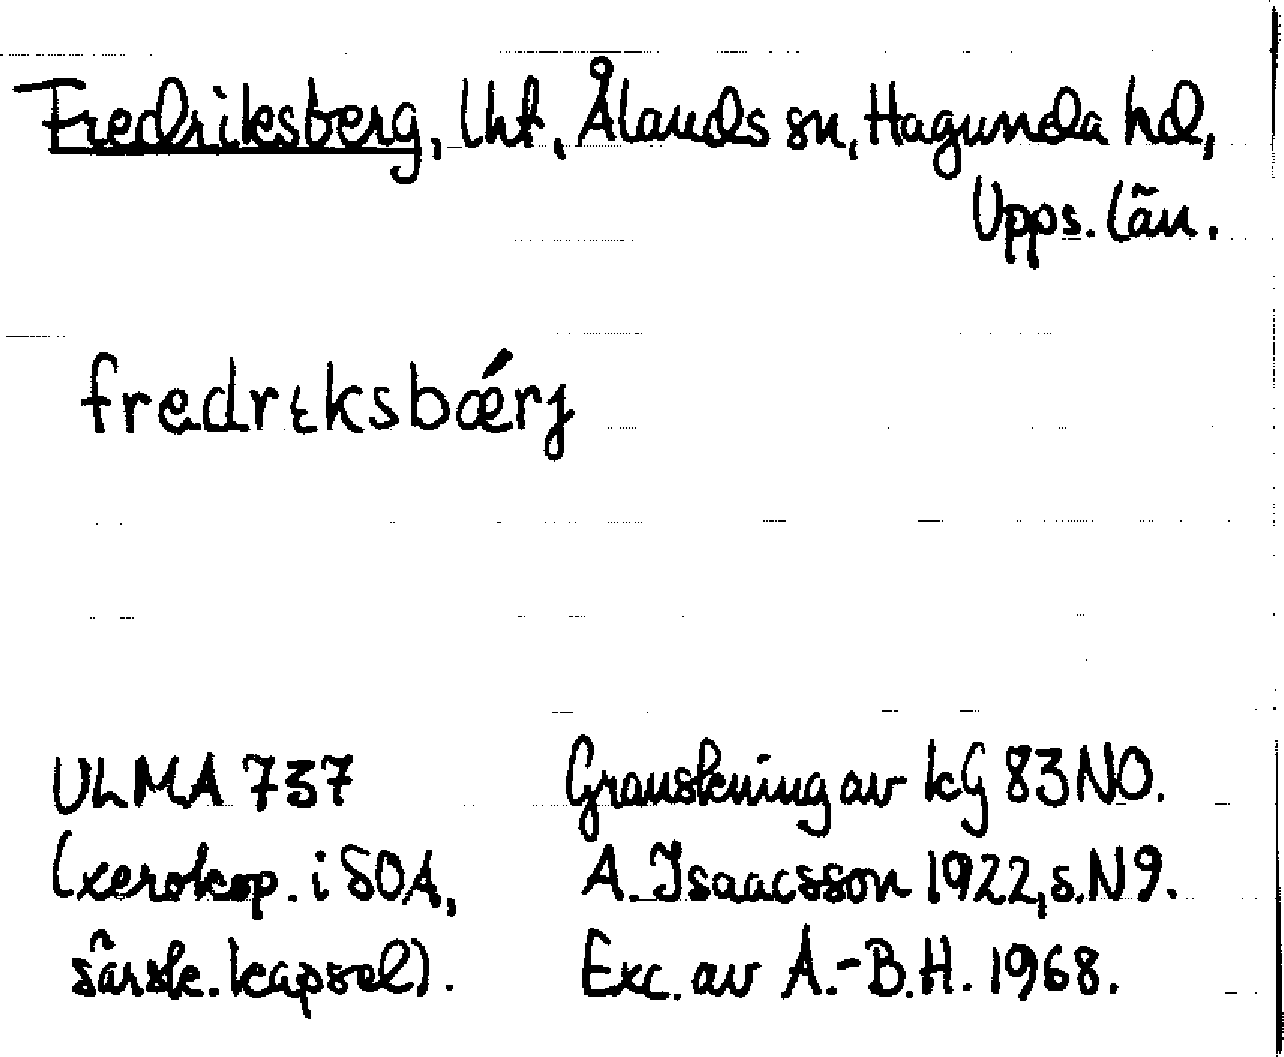 Fredriksberg, lht, Ålands sn, Hagunda hd,
Upps. län.
fredrɩksbǽrj
ULMA 737
(xerokop. i SOA,
särsk. kapsel).
Granskning av kG 83 NO.
A. Isaacsson 1922, s. N9.
Exc. av A.-B.H. 1968.